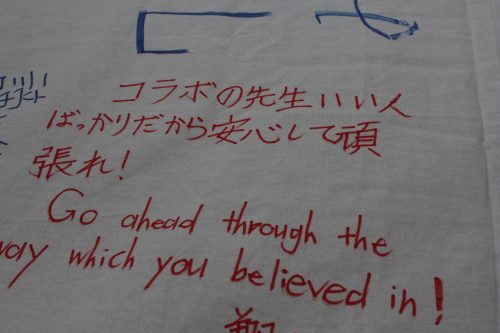 コラボの先生いい人
ばっかりだから安心して頑
張れ！
Go ahead through the
way which you believed in!